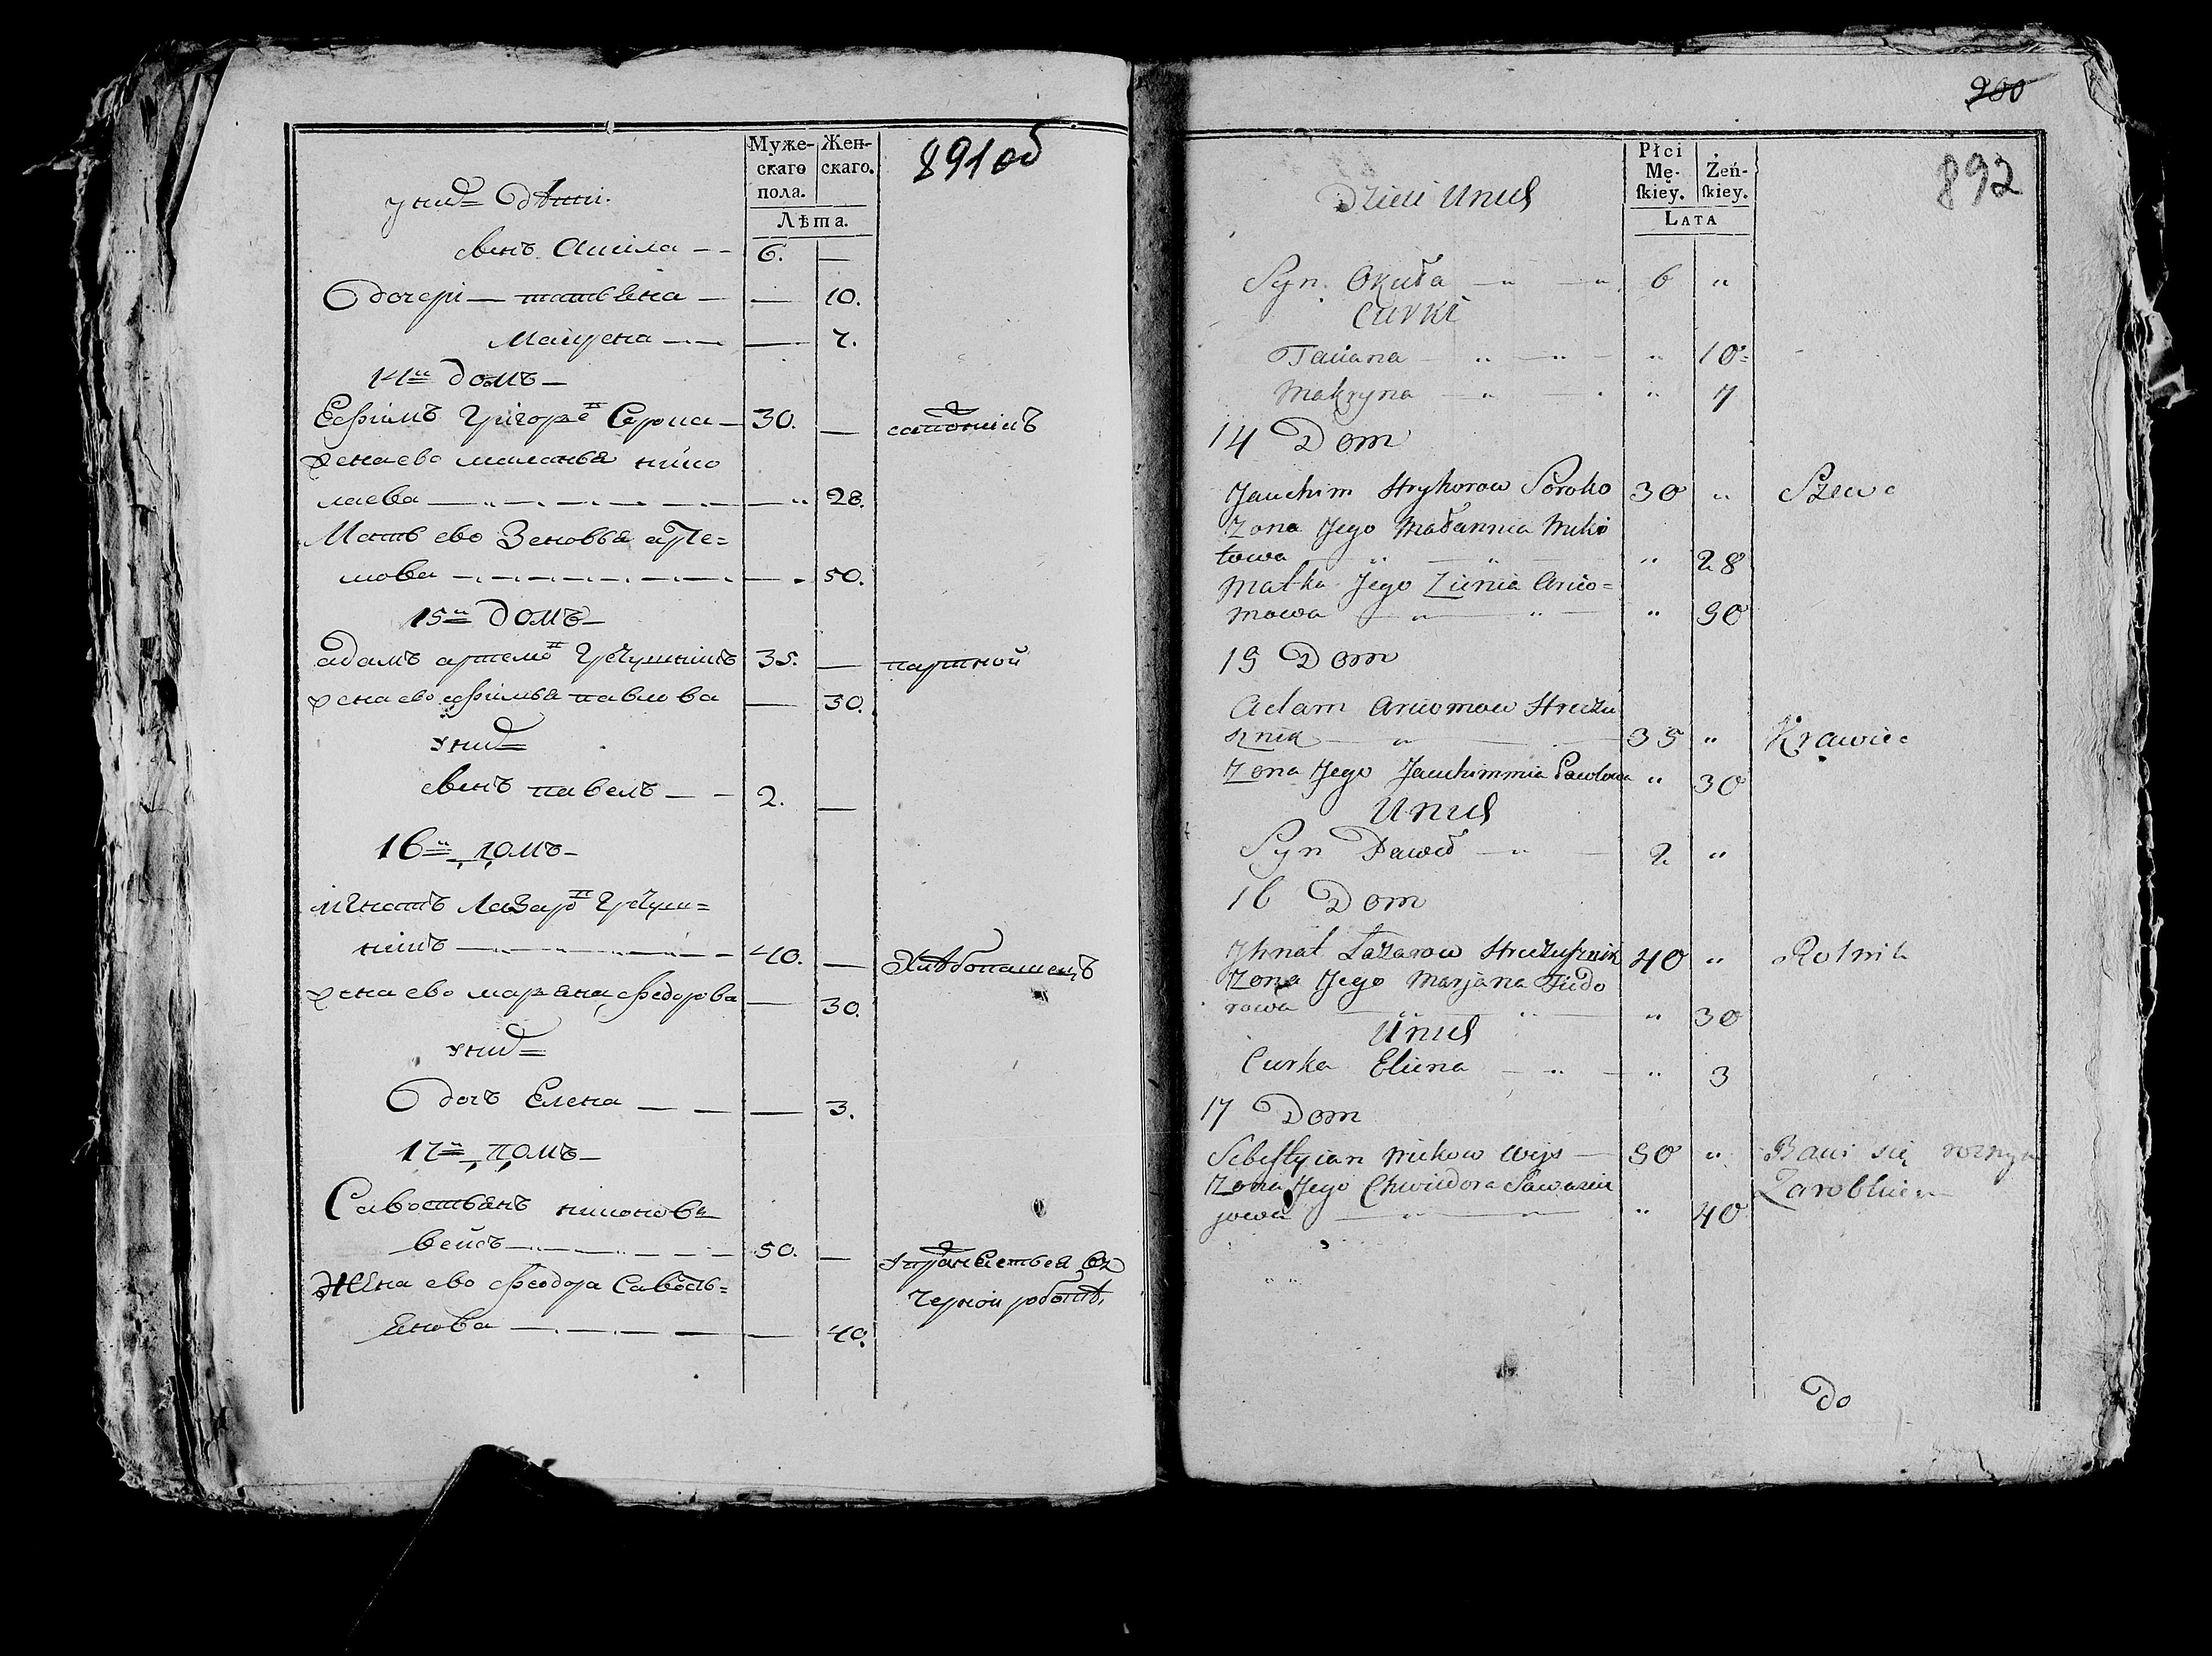 Муже-
скаго
пола.
Жен-
скаго.
Лѣта.
891 об
у них дѣти.
сынъ Акила — — 6. —
дочери — татьяна — — 10.
Макрена — — — 7.
14й домъ —
Ефимъ Григорьев Сорока — 30. — сапожникъ
жена ево маланья нико
лаева — — 28.
Мать ево Зеновья арте=
мова — — 50.
15й домъ —
адамъ артемов Гречушникъ 35. — партной
жена ево ефимья павлова — 30.
у них
сынъ павелъ — — 2. —
16й домъ —
игнатъ Лазаров Гречуш=
никъ — 40. — Хлѣбопашецъ
жена ево марьяна федорова — 30.
у них
дочь Елена — — — 3.
17й домъ —
Савостьянъ
50. —
Жена ево феодора Савость=
янова — — 40.
черной работѣ.
200
Płci
Mę-
ſkiey.
Żeń-
ſkiey.
LATA
892
Dzieci Unich
Syn Okuła — „ — „ 6 „
Curki
Taciana — „ — „ — „ 10
Makryna — „ — „ 7
14 Dom
Jauchim Hryhorow Soroko 30 „ Szewc
Zona Jego Małannia Miko
łowa — „ — „ „ 28
Matka Jego Zienia Arcio=
mowa — „ — „ — „ 50
15 Dom
Adam Arciomow Hreczu
sznik — „ — 35 „ Krawiec
Zona Jego Jauchimmia Pawłowa „ 30
Unich
Syn Paweł — „ — 2 „
16 Dom
Jhnat Łazarow Hreczusznik 40 „ Rolnik
Zona Jego Marjana Fiido
rowa — „ — „ — „ 30
Unich
Curka Eliena — „ — „ 3
17 Dom
Sebeſtycian — 50 „ Bawi się roznym
Zona Jego Chwiedora Sawaściu Zarobkiem
jowa — „ — „ — „ 40
Do